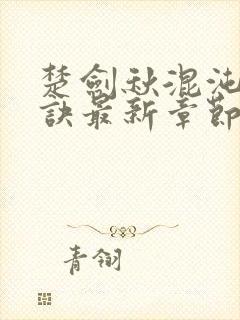 楚劍秋混沌
訣最新章節
青翎